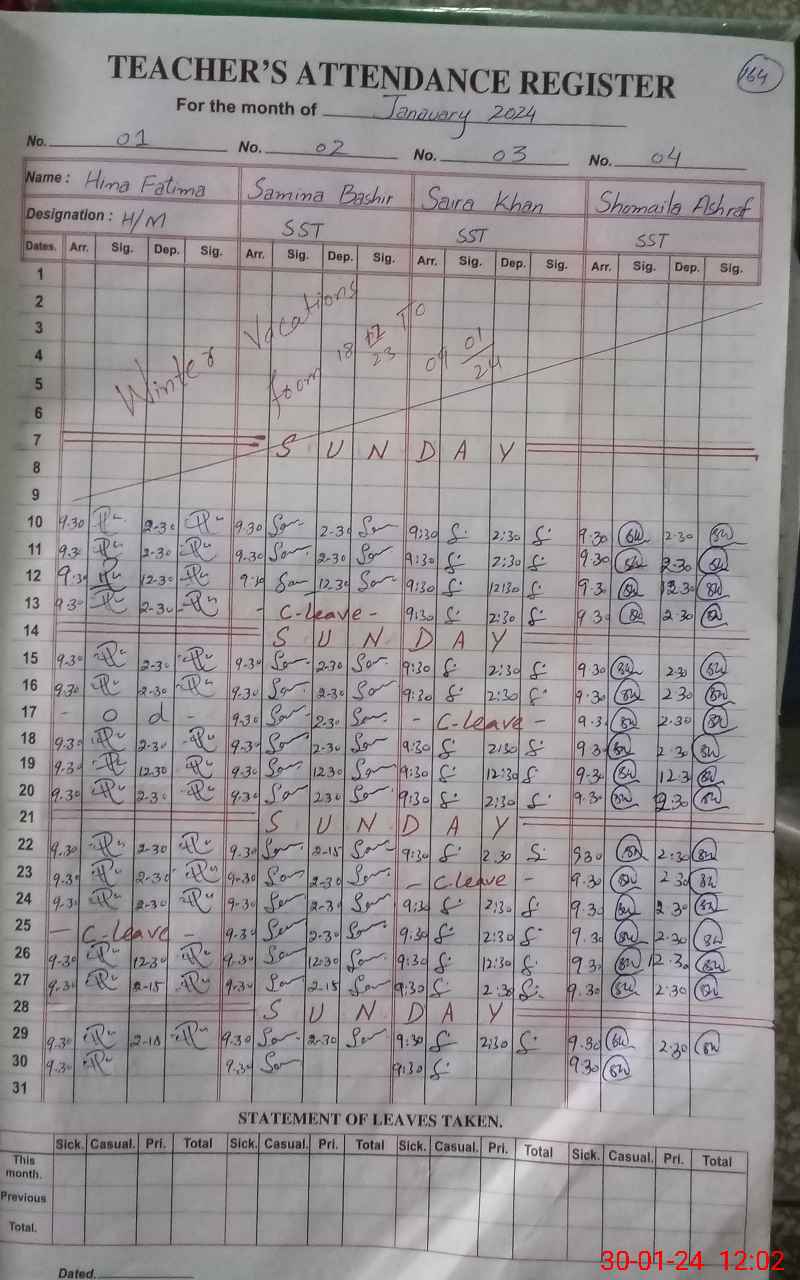 164
TEACHER'S ATTENDANCE REGISTER
For the month of Janauary 2024
No. 01 No. 02 No. 03 No. 04
Name : Hina Fatima Samina Bashir Saira Khan Shomaila Ashraf
Designation : H/M SST SST SST
Dates. Arr. Sig. Dep. Sig. Arr. Sig. Dep. Sig. Arr. Sig. Dep. Sig. Arr. Sig. Dep. Sig.
1
2
3
4
5
6
Winter Vacations
from 18 12 23 To 09 01/24
7 SUNDAY
8
9
10 9.30 2-30 9.30 2-30 9:30 2:30 9.30 2.30
11 9.30 2-30 9.30 2-30 9:30 2:30 9.30 2.30
12 9.30 12-30 9.30 12.30 9:30 12:30 9.30 12.30
13 9.30 2-30 - C-leave - 9:30 2:30 9.30 2.30
14 SUNDAY
15 9.30 2-30 9.30 2-30 9:30 2:30 9.30 2.30
16 9.30 2-30 9.30 2-30 9:30 2:30 9.30 2.30
17 - o d - 9.30 2-30 - C-leave - 9.30 2.30
18 9.30 2-30 9.30 2-30 9:30 2:30 9.30 2.30
19 9.30 12.30 9.30 12.30 9:30 12:30 9.30 12.30
20 9.30 2-30 9.30 2.30 9:30 2:30 9.30 2.30
21 SUNDAY
22 9.30 2-30 9.30 2-15 9:30 2.30 9.30 2.30
23 9.30 2-30 9.30 2-30 - C-leave - 9.30 2.30
24 9.30 2-30 9.30 2-30 9:30 2:30 9.30 2.30
25 - C-leave - 9.30 2-30 9:30 2:30 9.30 2.30
26 9.30 12-30 9.30 12.30 9:30 12:30 9.30 12.30
27 9.30 2-15 9.30 2-15 9:30 2:30 9.30 2.30
28 SUNDAY
29 9.30 9.30 2-30 9:30 2:30 9.30 2.30
30 9.30 9.30 9:30 9.30
31
STATEMENT OF LEAVES TAKEN.
Sick. Casual. Pri. Total Sick. Casual. Pri. Total Sick. Casual. Pri. Total Sick. Casual. Pri. Total
This month.
Previous
Total.
Dated.
30-01-24 12:02